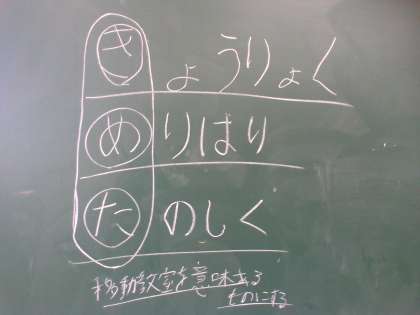 きょうりょく
めりはり
たのしく
移動教室を意味ある
ものにする